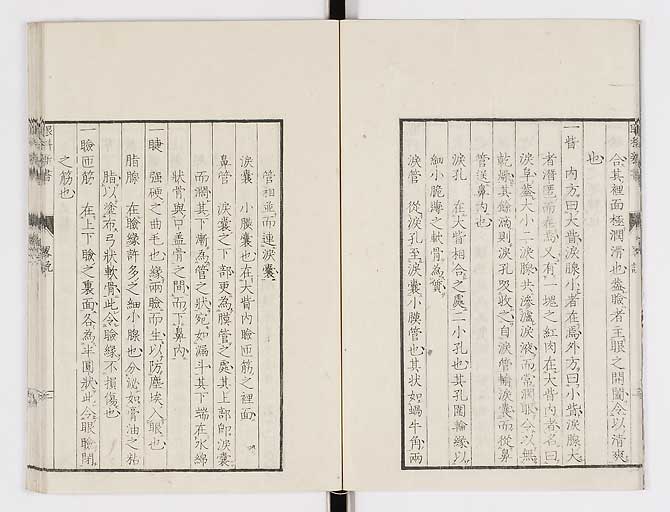 合其裡面極潤滑也蓋瞼者主眼之開闔令以清爽
也
一眥 內方曰大眥淚腺小者在焉外方曰小眥淚腺大
者潛匿而在焉又有一塊之紅肉在大眥內者名曰
淚阜蓋大小二淚腺共滲濾淚液而常潤眼令以無
乾燥其餘滿則淚孔吸收之自淚管輸淚囊而從鼻
管送鼻內也
淚孔 在大眥相合之處二小孔也其孔圍輪緣以
細小脆薄之軟骨為質
淚管 從淚孔至淚囊小膜管也其狀如蝸牛角兩
管相並而連淚囊
淚囊 小膜囊也在大眥內瞼匝筋之裡面
鼻管 淚囊之下部更為膜管之處其上部即淚囊
而濶其下漸為管之狀宛如漏斗其下端在水綿
狀骨與口蓋骨之間而下鼻內
一睫 強硬之曲毛也緣兩瞼而生以防塵埃入眼也
脂腺 在瞼緣許多之細小腺也分泌如膏油之粘
脂以塗布弓狀軟骨此令瞼緣不損傷也
一瞼匝筋 在上下瞼之裏面各為半圓狀此令眼瞼閉
之筋也
眼科新書